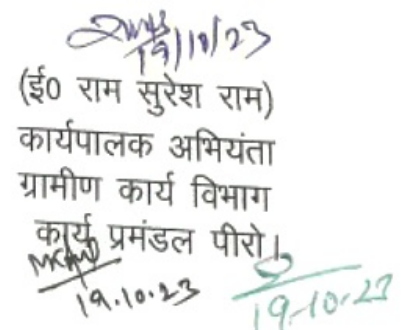 19/10/23
(ई० राम सुरेश राम)
कार्यपालक अभियंता
ग्रामीण कार्य विभाग
कार्य प्रमंडल पीरो।
19.10.23 19.10.23